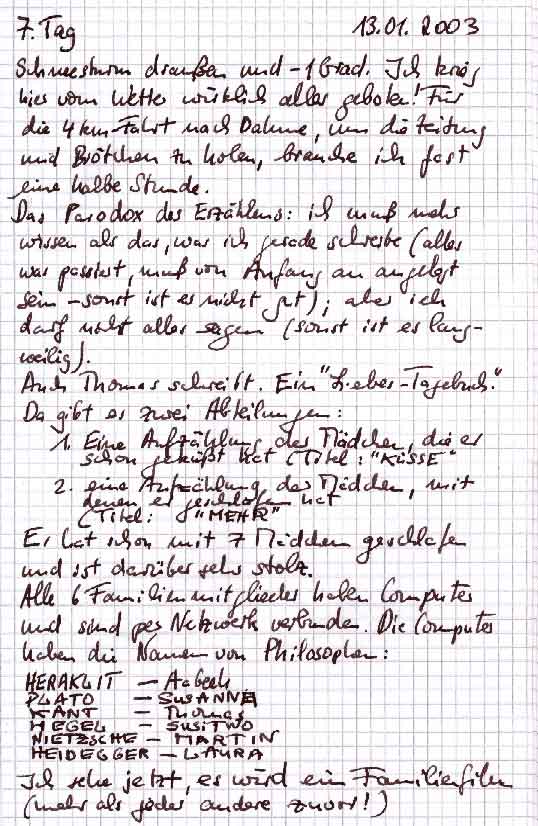 7. Tag 13.01.2003
Schneesturm draußen und -1 Grad. Ich krieg
hier vom Wetter wirklich alles geboten! Für
die 4 km-Fahrt nach Dahme, um die Zeitung
und Brötchen zu holen, brauche ich fast
eine halbe Stunde.
Das Paradox des Erzählens: ich muß mehr
wissen als das, was ich gerade schreibe (alles
was passiert, muß von Anfang an angelegt
sein - sonst ist es nicht gut); aber ich
darf nicht alles sagen (sonst ist es lang-
weilig).
Auch Thomas schreibt. Ein "Liebes-Tagebuch".
Da gibt es zwei Abteilungen:
1. Eine Aufzählung der Mädchen, die er
schon geküßt hat (Titel: "KÜSSE"
2. eine Aufzählung der Mädchen, mit
denen er geschlafen hat
(Titel: "MEHR"
Er hat schon mit 7 Mädchen geschlafen
und ist darüber sehr stolz.
Alle 6 Familienmitglieder haben Computer
und sind per Netzwerk verbunden. Die Computer
haben die Namen von Philosophen:
HERAKLIT —
PLATO — SUSANNA
KANT — Thomas
HEGEL — SUSITWO
NIETZSCHE — MARTIN
HEIDEGGER — LAURA
Ich sehe jetzt, es wird ein Familienfilm
(mehr als jeder andere zuvor!)